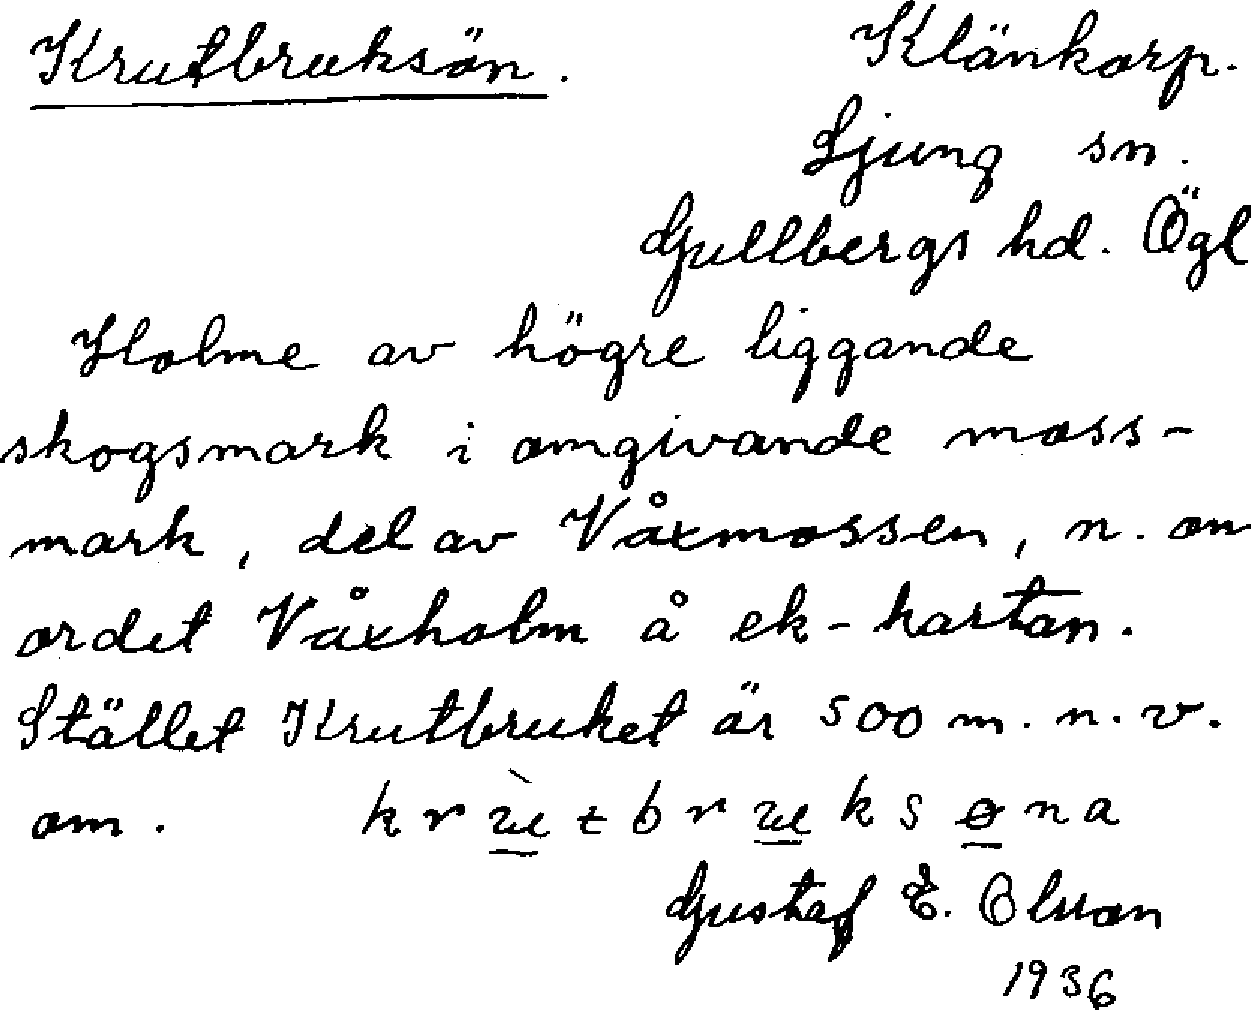 Krutbruksön. Klänkorp.
Ljung sn.
Gullbergs hd. Ögl
Holme av högre liggande
skogsmark i omgivande moss-
mark, del av Våxmossen, n. om
ordet Våxholm å ek-kartan.
Stället Krutbruket är 500 m. n.v.
om. krùtbruksøna
Gustaf E. Olsson
1936